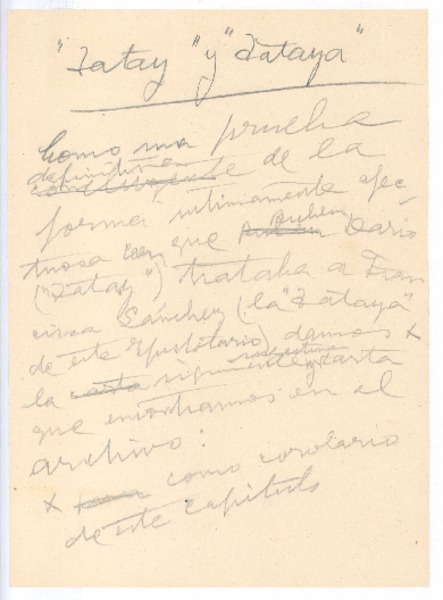 "Tatay" y "Tataya"
Como una prueba
definitiva
concluyente de la
forma íntimamente afec
tuosa con que Rubén Darío
("Tatay") trataba a Fran
cisca Sánchez (la "Tataya"
de este Epistolario) damos x
la carta siguiente y carta
que encontramos en el
archivo:
x como corolario
de este capítulo